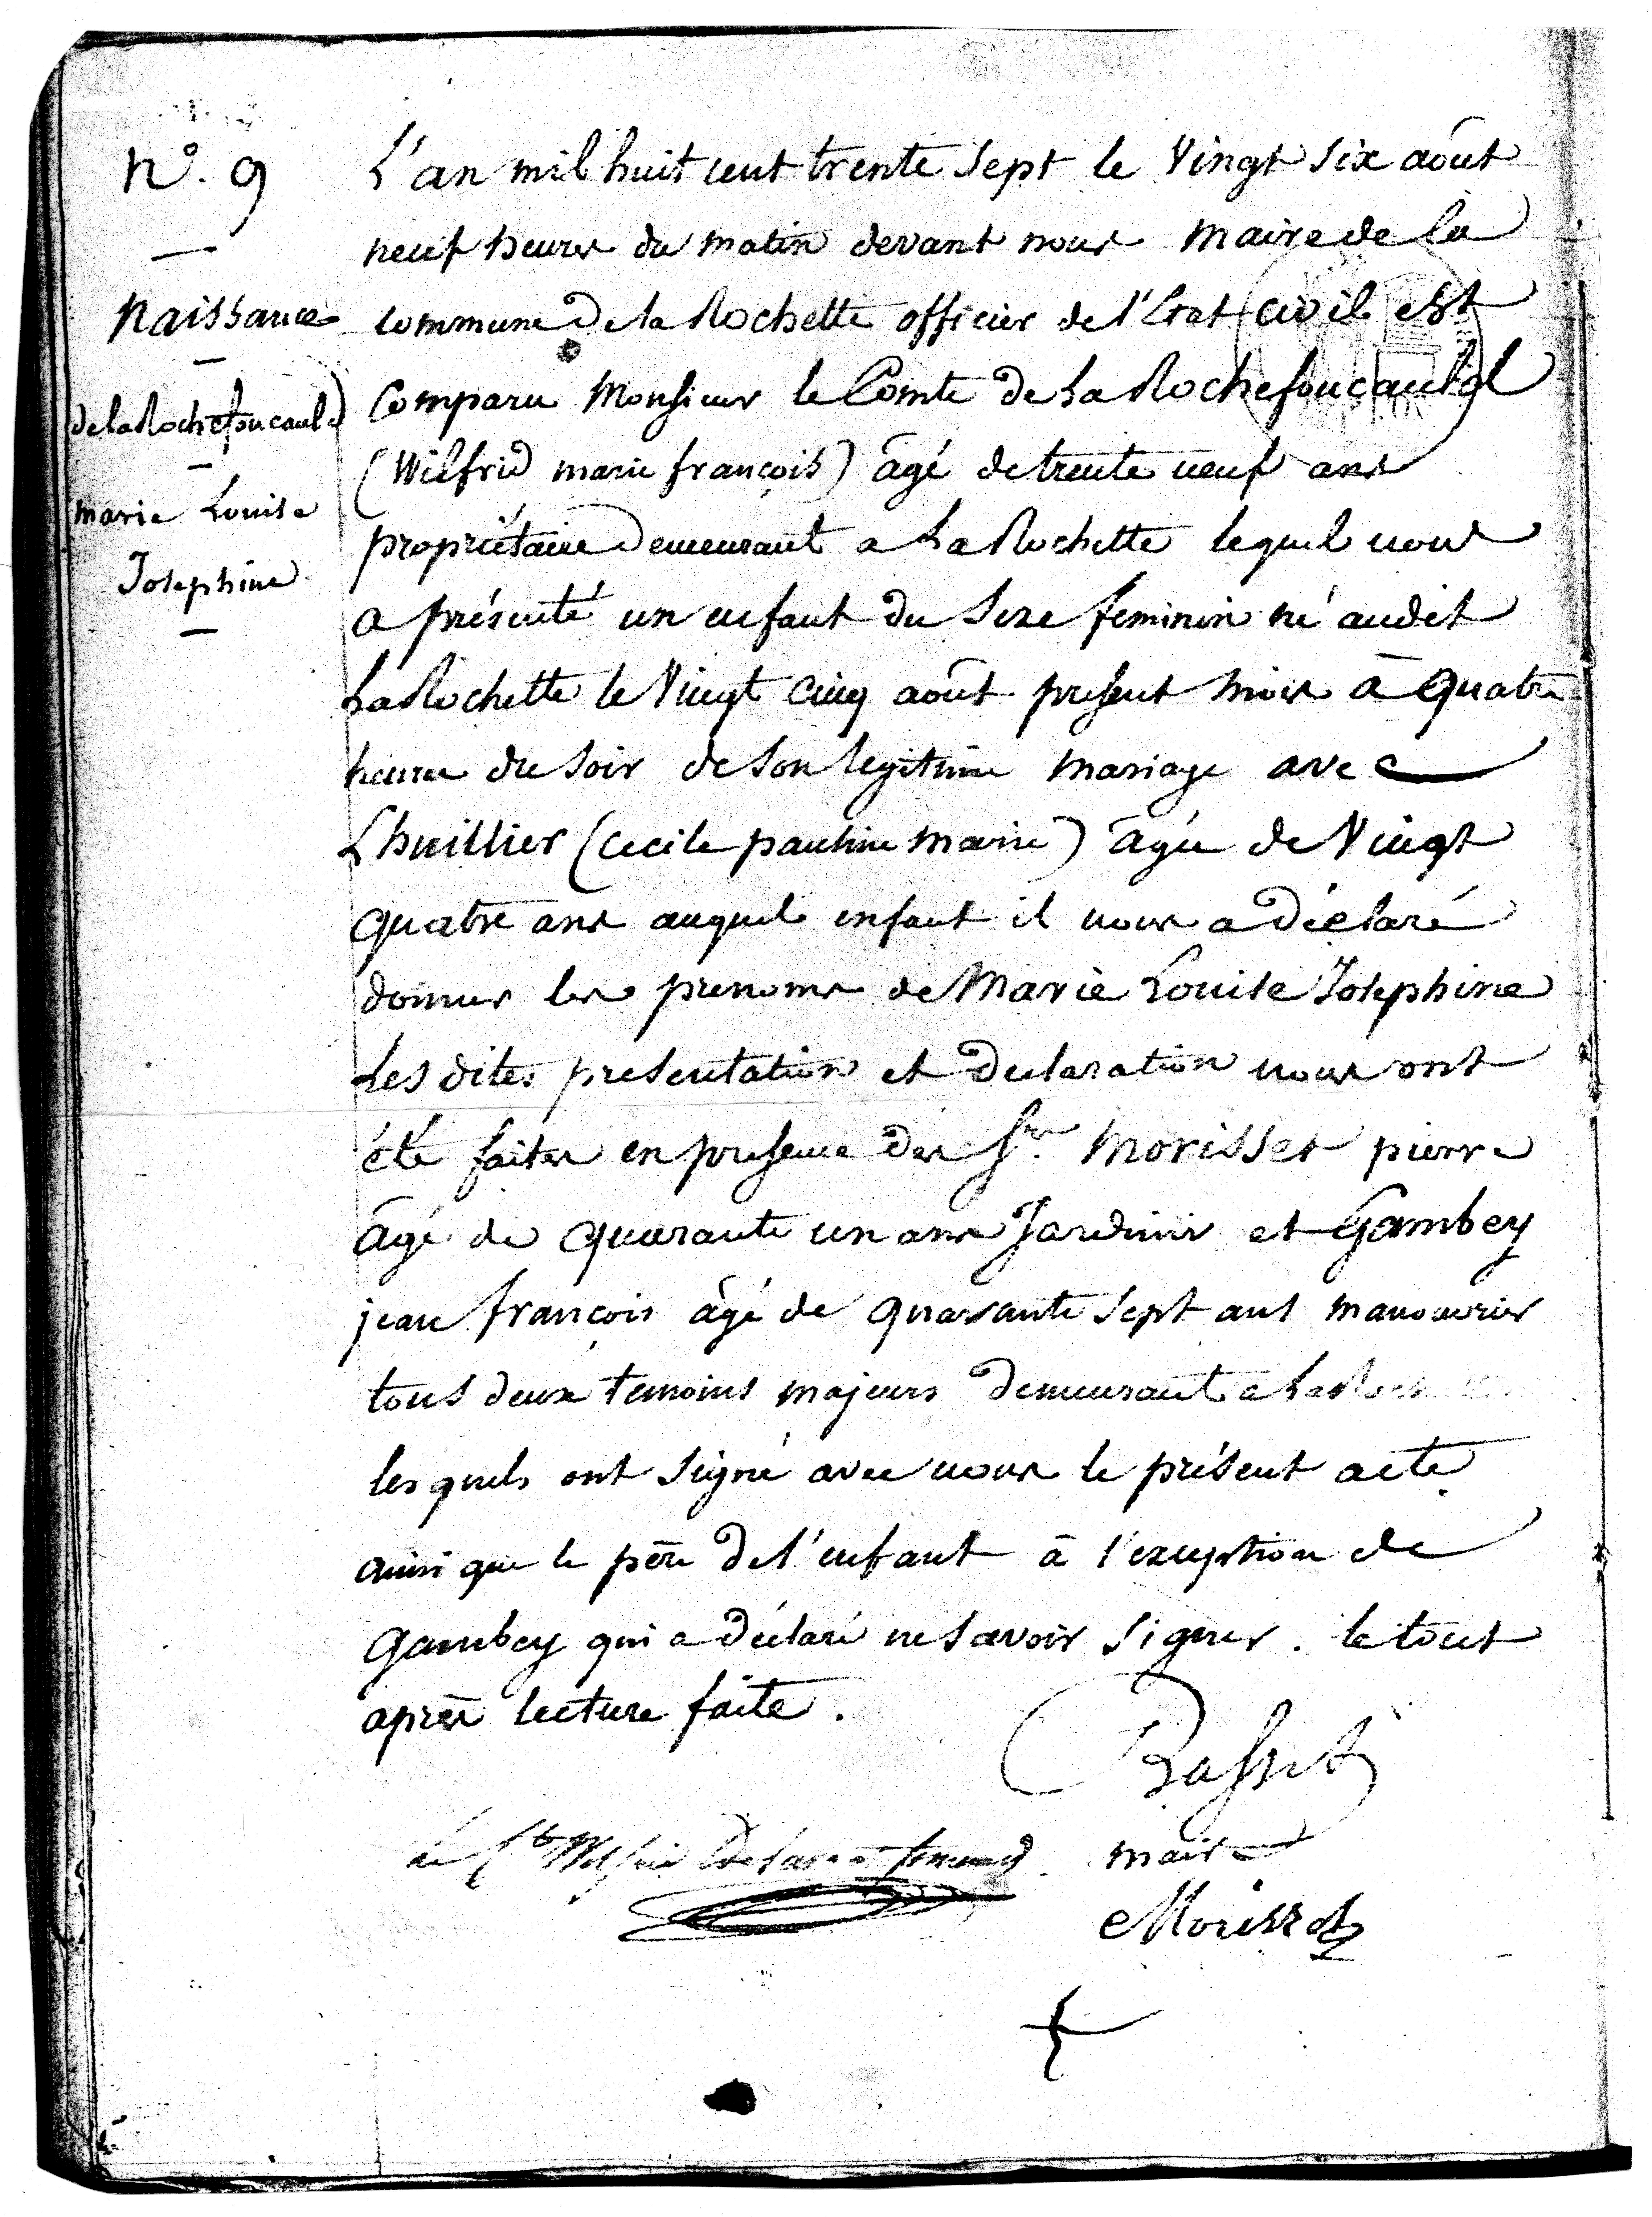 N°. 9
Naissance
de la Rochefoucauld
marie Louise
Josephine
L'an mil huit cent trente sept le Vingt six août
neuf heures du matin devant nous maire de la
commune de la Rochette officier de l'Etat civil est
Comparu Monsieur le Comte de La Rochefoucauld
(Wilfrid marie françois) âgé de trente neuf ans
propriétaire demeurant a La Rochette lequel nous
a présenté un enfant du sexe feminin né audit
La Rochette le Vingt cinq août present mois à quatre
heures du soir de son legitime mariage avec
Lhuillier (cecile pauline marie) âgée de Vingt
quatre ans auquel enfant il nous a déclaré
donner les prenoms de Marie Louise Josephine
Les dites presentation et declaration nous ont
été faites en presence des Srs. Morisset pierre
âgé de quarante un ans Jardinier et Gambey
jean françois âgé de quarante sept ans manouvrier
tous deux temoins majeurs demeurant a La Rochette
les quels ont signé avec nous le présent acte
ainsi que le père de l'enfant à l'exception de
Gambey qui a déclaré ne savoir signer. le tout
après lecture faite.
le Cte Wilfrid
maire
Morisset